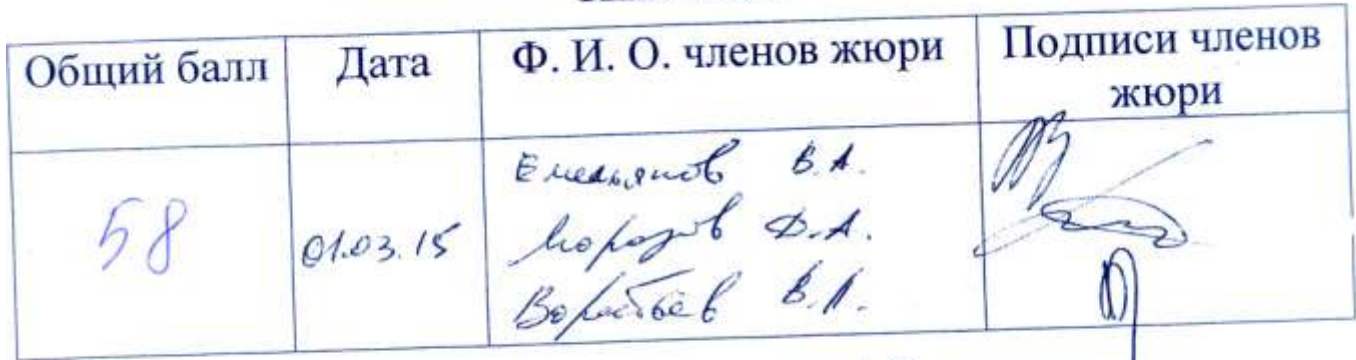 Общий балл Дата Ф. И. О. членов жюри Подписи членов
жюри
58 01.03.15 Емельянов В.А.
Морозов Д.А.
Воробьев В.Л.